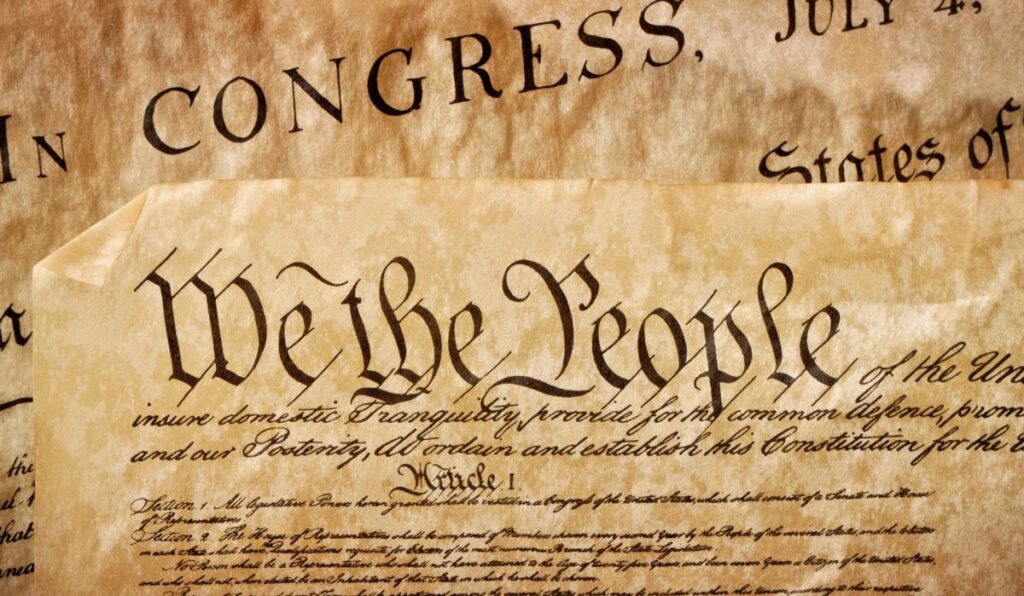 IN CONGRESS, JULY 4,
States of
We the People of the Un
insure domestic Tranquility, provide for the common defence, prom
and our Posterity, do ordain and establish this Constitution for the
Article I.
Section 1. All legislative Powers herein granted shall be vested in a Congress of the United States, which shall consist of a Senate and House
of Representatives.
Section 2. The House of Representatives shall be composed of Members chosen every second Year by the People of the several States, and the Electors
in each State shall have Qualifications requisite for Electors of the most numerous Branch of the State Legislature.
No Person shall be a Representative who shall not have attained to the Age of twenty five Years, and been seven Years a Citizen of the United States,
and who shall not, when elected, be an Inhabitant of that State in which he shall be chosen.
the
that